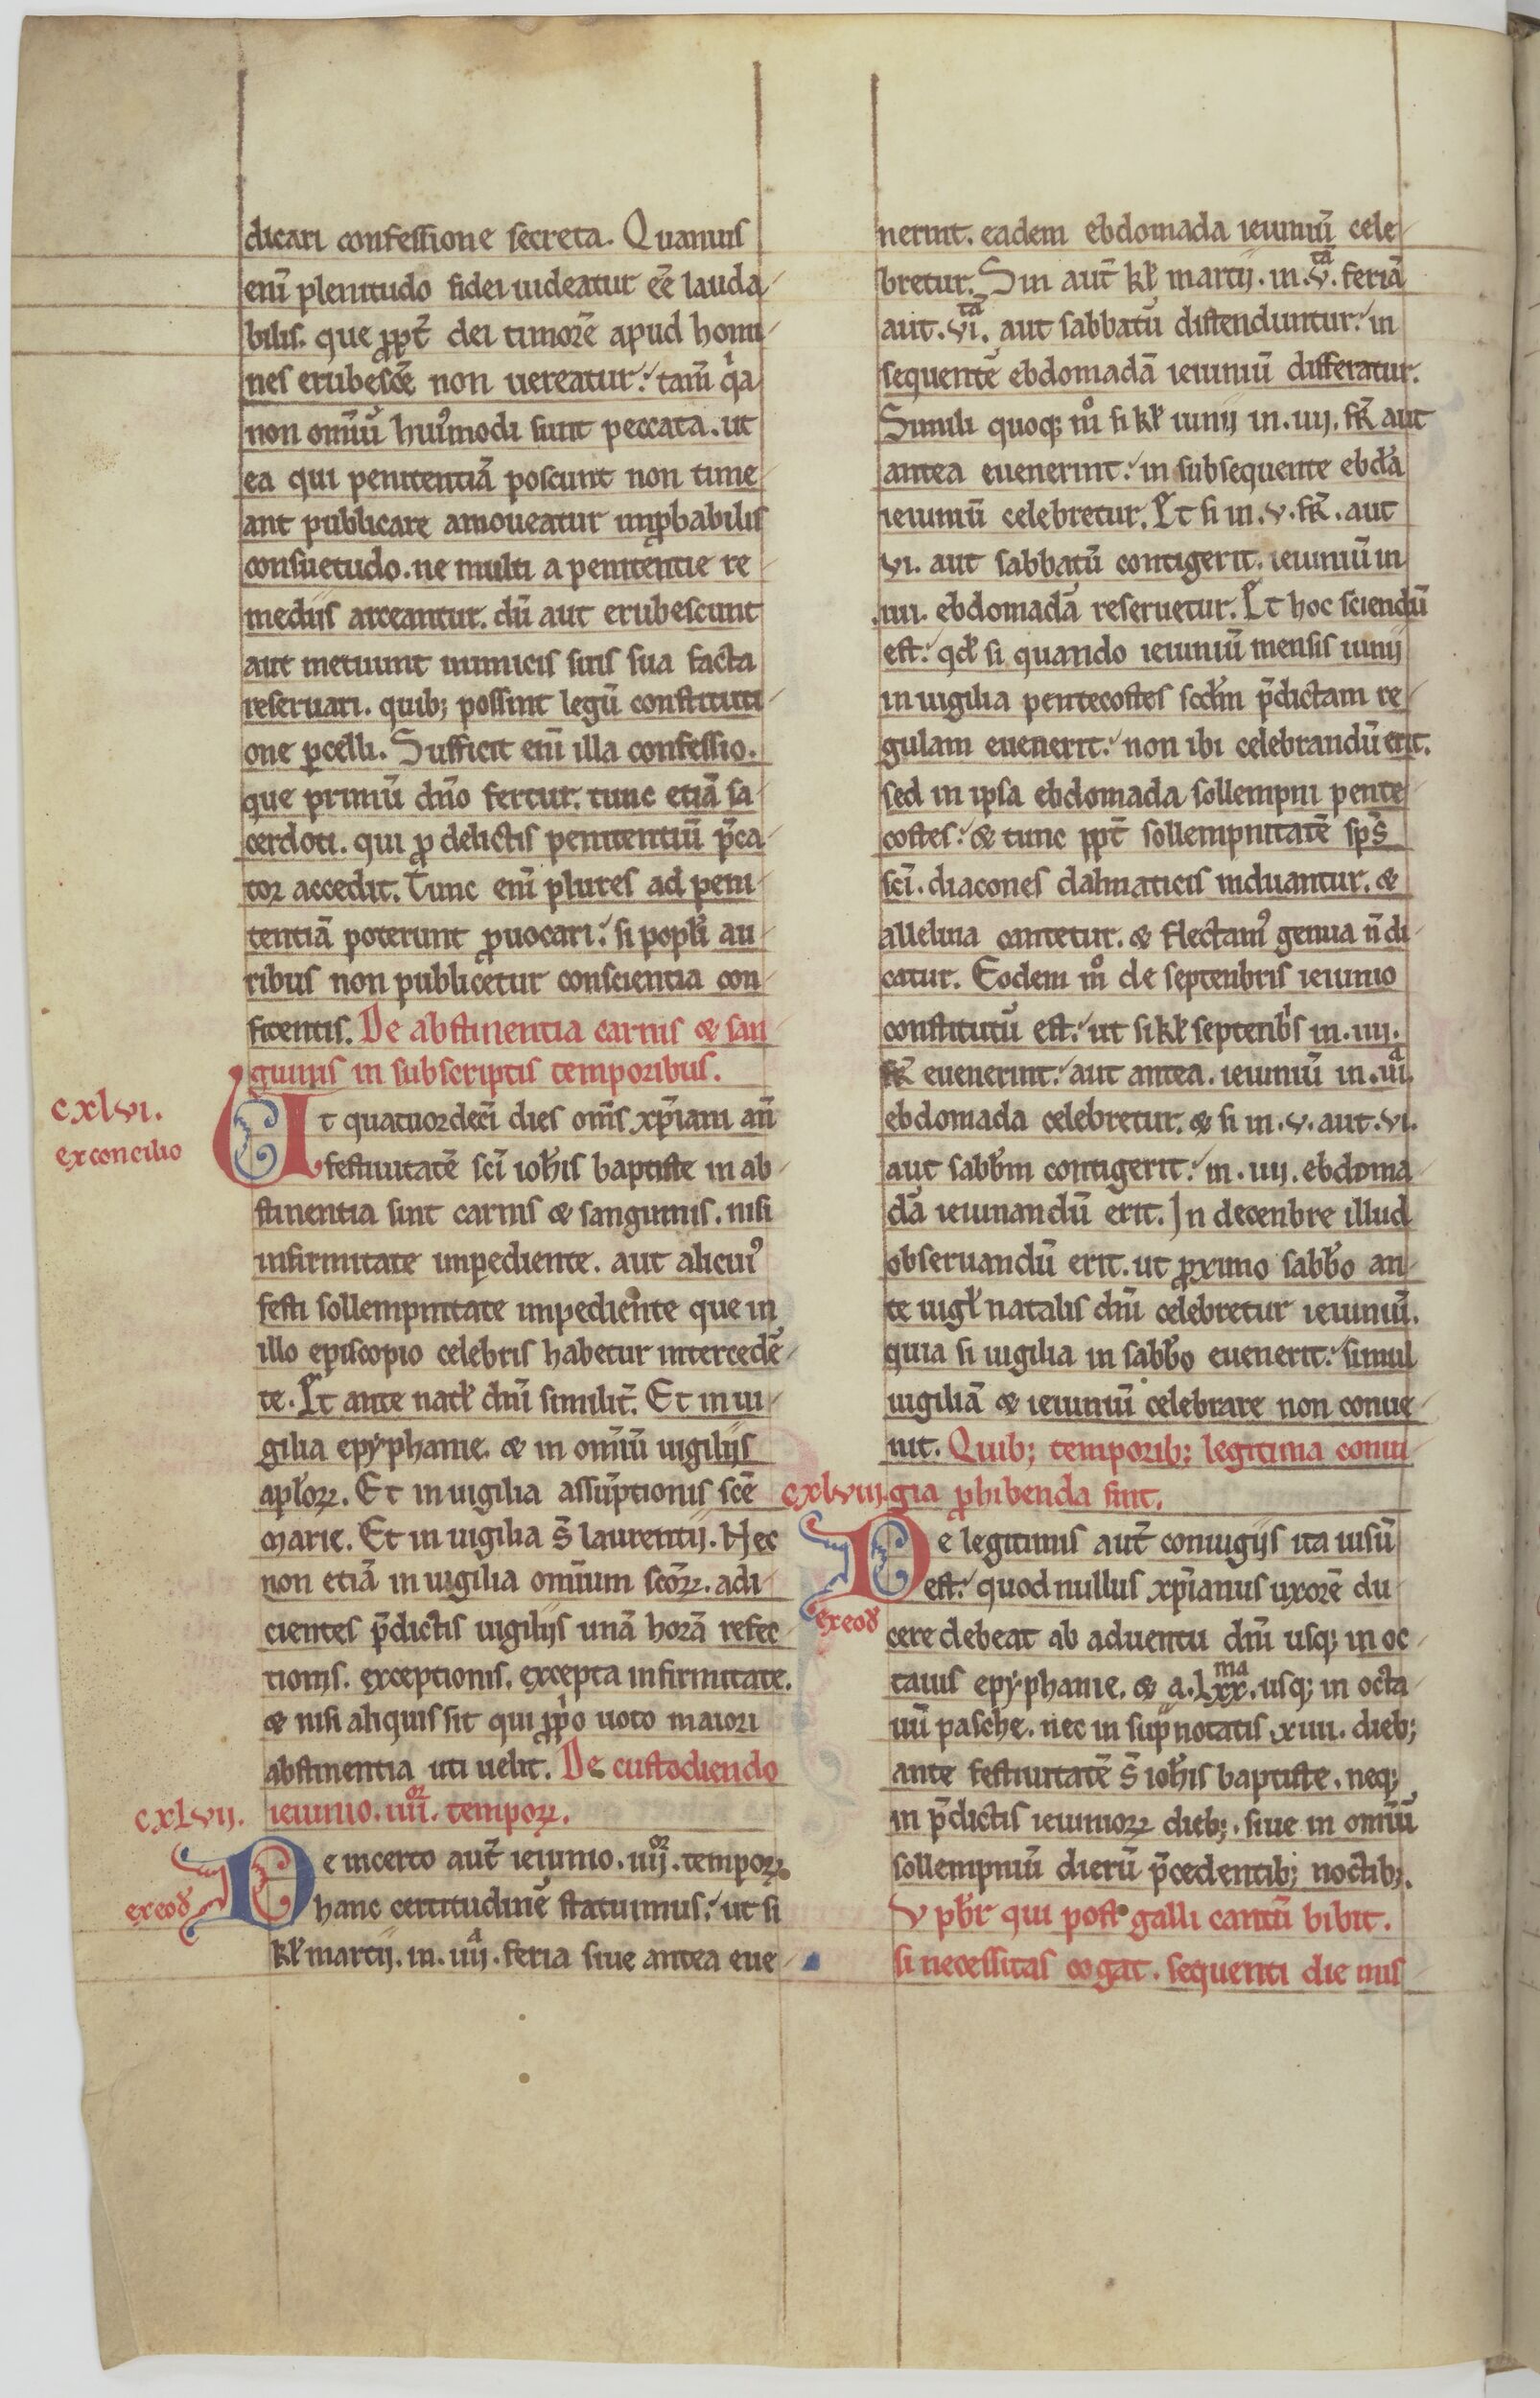 dicari confessione secreta. Quamuis
enī plenitudo fidei uideatur eē lauda
bilis. que ꝓpt̄ dei timorē apud homi
nes erubescē non uereatur. tam̄ qͥa
non omīū huiꝰmodi sunt peccata. ut
ea qui penitentiā poscunt non time
ant publicare amoueatur inꝓbabilis
consuetudo. ne multi a penitentie re
medijs arceantur. dū aut erubescunt
aut metuunt inimicis suis sua facta
reseruari. quib; possint legū constituti
one ꝑcelli. Sufficit enī illa confessio.
que primū dn̄o fertur. tunc etiā sa
cerdoti. qui ꝓ delictis penitentiū p̄ca
tor accedit. Tunc enī plures ad peni
tentiā poterunt ꝓuocari. si popłi au
ribus non publicetur conscientia con
fitentis. De abstinentia carnis & san
guinis in subscriptis temporibus.
cxlvi.
ex concilio
Ut quatuordecī dies om̄s xp̄iani an̄
festiuitatē scī ioh̄is baptiste in ab
stinentia sint carnis & sanguinis. nisi
infirmitate impediente. aut alicuiꝰ
festi sollempnitate impediente que in
illo episcopio celebris habetur intercedē
te. Et ante natł dn̄i similit̄. Et in ui
gilia epyphanie. & in omīū uigilijs
apłoꝝ. Et in uigilia assūptionis scē
marie. Et in uigilia s̄ laurentij. Nec
non etiā in uigilia omnium scōꝝ. adi
cientes p̄dictis uigilijs unā horā refec
tionis. exceptionis. excepta infirmitate.
& nisi aliquis sit qui ꝓpͥo uoto maiori
abstinentia uti uelit. De custodiendo
cxlvii. ieiunio. iiiiᵒʳ. tempoꝝ.
De incerto aut̄ ieiunio. iiijᵒʳ. tempoꝝ
ex eod̄ hanc certitudinē statuimus. ut si
kł martij. in. iiijᵃ. feria siue antea eue
nerint. eadem ebdomada ieiuniū cele
bretur. Sin aut̄ kł martij. in. v.ᵗᵃ feriā
aut. vi.ᵗᵃ aut sabbatū distenduntur. in
sequentē ebdomadā ieiuniū differatur.
Simili quoq; mͦ si kł iunij in. iiij. fr̄ aut
antea euenerint. in subsequente ebd̄a
ieiuniū celebretur. Et si in. v. fr̄. aut
vi. aut sabbatū contigerit. ieiuniū in
.iiii. ebdomadā reseruetur. Et hoc sciendū
est. qđ si quando ieiuniū mensis iunij
in uigilia pentecostes scdm̄ p̄dictam re
gulam euenerit. non ibi celebrandū erit.
sed in ipsa ebdomada sollempni pente
costes. & tunc ꝓpt̄ sollempnitatē sp̄s
scī. diacones dalmaticis induantur. &
alleluia cantetur. & flectamꝰ genua n̄ di
catur. Eodem mͦ de septenbris ieiunio
constitutū est. ut si kł septenb̄s in. iiij.
fr̄ euenerint. aut antea. ieiuniū in. iiiᵃ.
ebdomada celebretur. & si in. v. aut. vi.
aut sabb̄m contigerit. in. iiij. ebdoma
dā ieiunandū erit. In decenbre illud
obseruandū erit. ut ꝓximo sabb̄o an
te uigł natalis dn̄i celebretur ieiuniū.
quia si uigilia in sabb̄o euenerit. simul
uigiliā & ieiuniū celebrare non conue
nit. Quib; temporib; legitima coniu
cxlviii. gia ꝓhibenda sint.
De legitimis aut̄ coniugijs ita uisū
est. quod nullus xp̄ianus uxorē du
ex eod̄ cere debeat ab aduentu dn̄i usq; in oc
tauis epyphanie. & a. lxx.ᵐᵃ usq; in octa
uū pasche. nec in sup̄notatis. xiiii. dieb;
ante festiuitatē s̄ ioh̄is baptiste. neq;
in p̄dictis ieiunioꝝ dieb;. siue in omīū
sollempniū dierū p̄cedentib; noctib;.
V pb̄r qui post galli cantū bibit.
si necessitas cogat. sequenti die mis